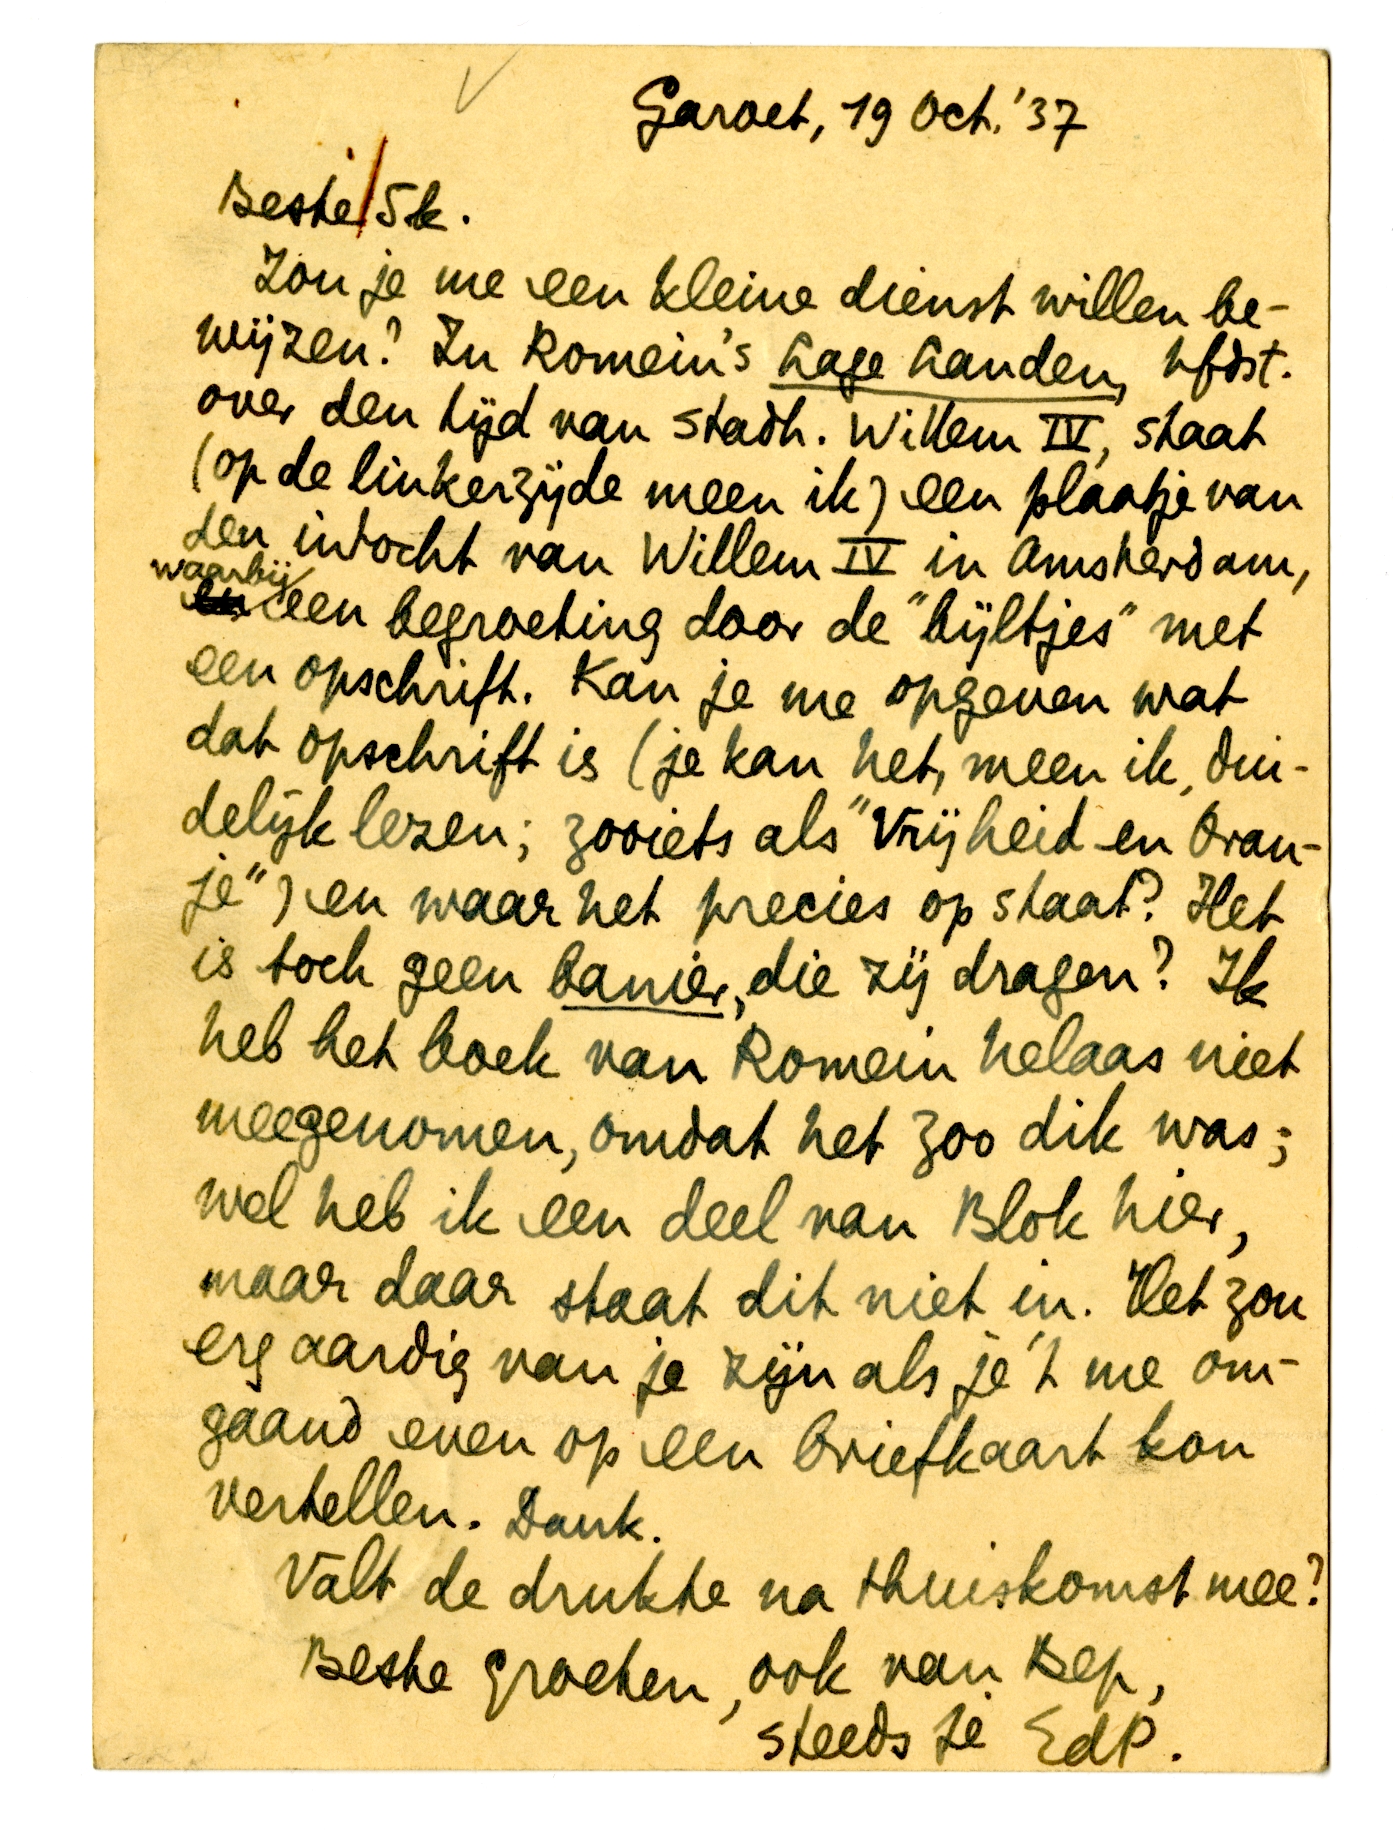 Garoet, 19 Oct. '37
Beste Sk.
Zou je me een kleine dienst willen be-
wijzen? In Romein's Lage Landen, hfdst.
over den tijd van stadh. Willem IV, staat
(op de linkerzijde meen ik) een plaatje van
den intocht van Willem IV in Amsterdam,
waarbij
en een begroeting door de "bijltjes" met
een opschrift. Kan je me opgeven wat
dat opschrift is (je kan het, meen ik, dui-
delijk lezen; zooiets als "Vrijheid en Oran-
je") en waar het precies op staat? Het
is toch geen banier, die zij dragen? Ik
heb het boek van Romein helaas niet
meegenomen, omdat het zoo dik was;
wel heb ik een deel van Blok hier,
maar daar staat dit niet in. Het zou
erg aardig van je zijn als je 't me om-
gaand even op een briefkaart kon
vertellen. Dank.
Valt de drukte na thuiskomst mee?
Beste groeten, ook van Bep,
steeds je EdP.